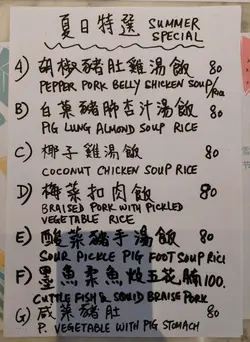 夏日特選 SUMMER
SPECIAL
A) 胡椒豬肚雞湯飯 80
PEPPER PORK BELLY CHICKEN SOUP/Rice
B) 白菜豬肺杏汁湯飯 80
PIG LUNG ALMOND SOUP RICE
C) 椰子雞湯飯 80
COCONUT CHICKEN SOUP RICE
D) 梅菜扣肉飯 80
BRAISED PORK WITH PICKLED
VEGETABLE RICE
E) 酸菜豬手湯飯 80
SOUR PICKLE PIG FOOT SOUP RICE
F) 墨魚柔魚炆五花腩 100.
CUTTLE FISH & SQUID BRAISE PORK
G) 咸菜豬肚 80
P. VEGETABLE WITH PIG STOMACH